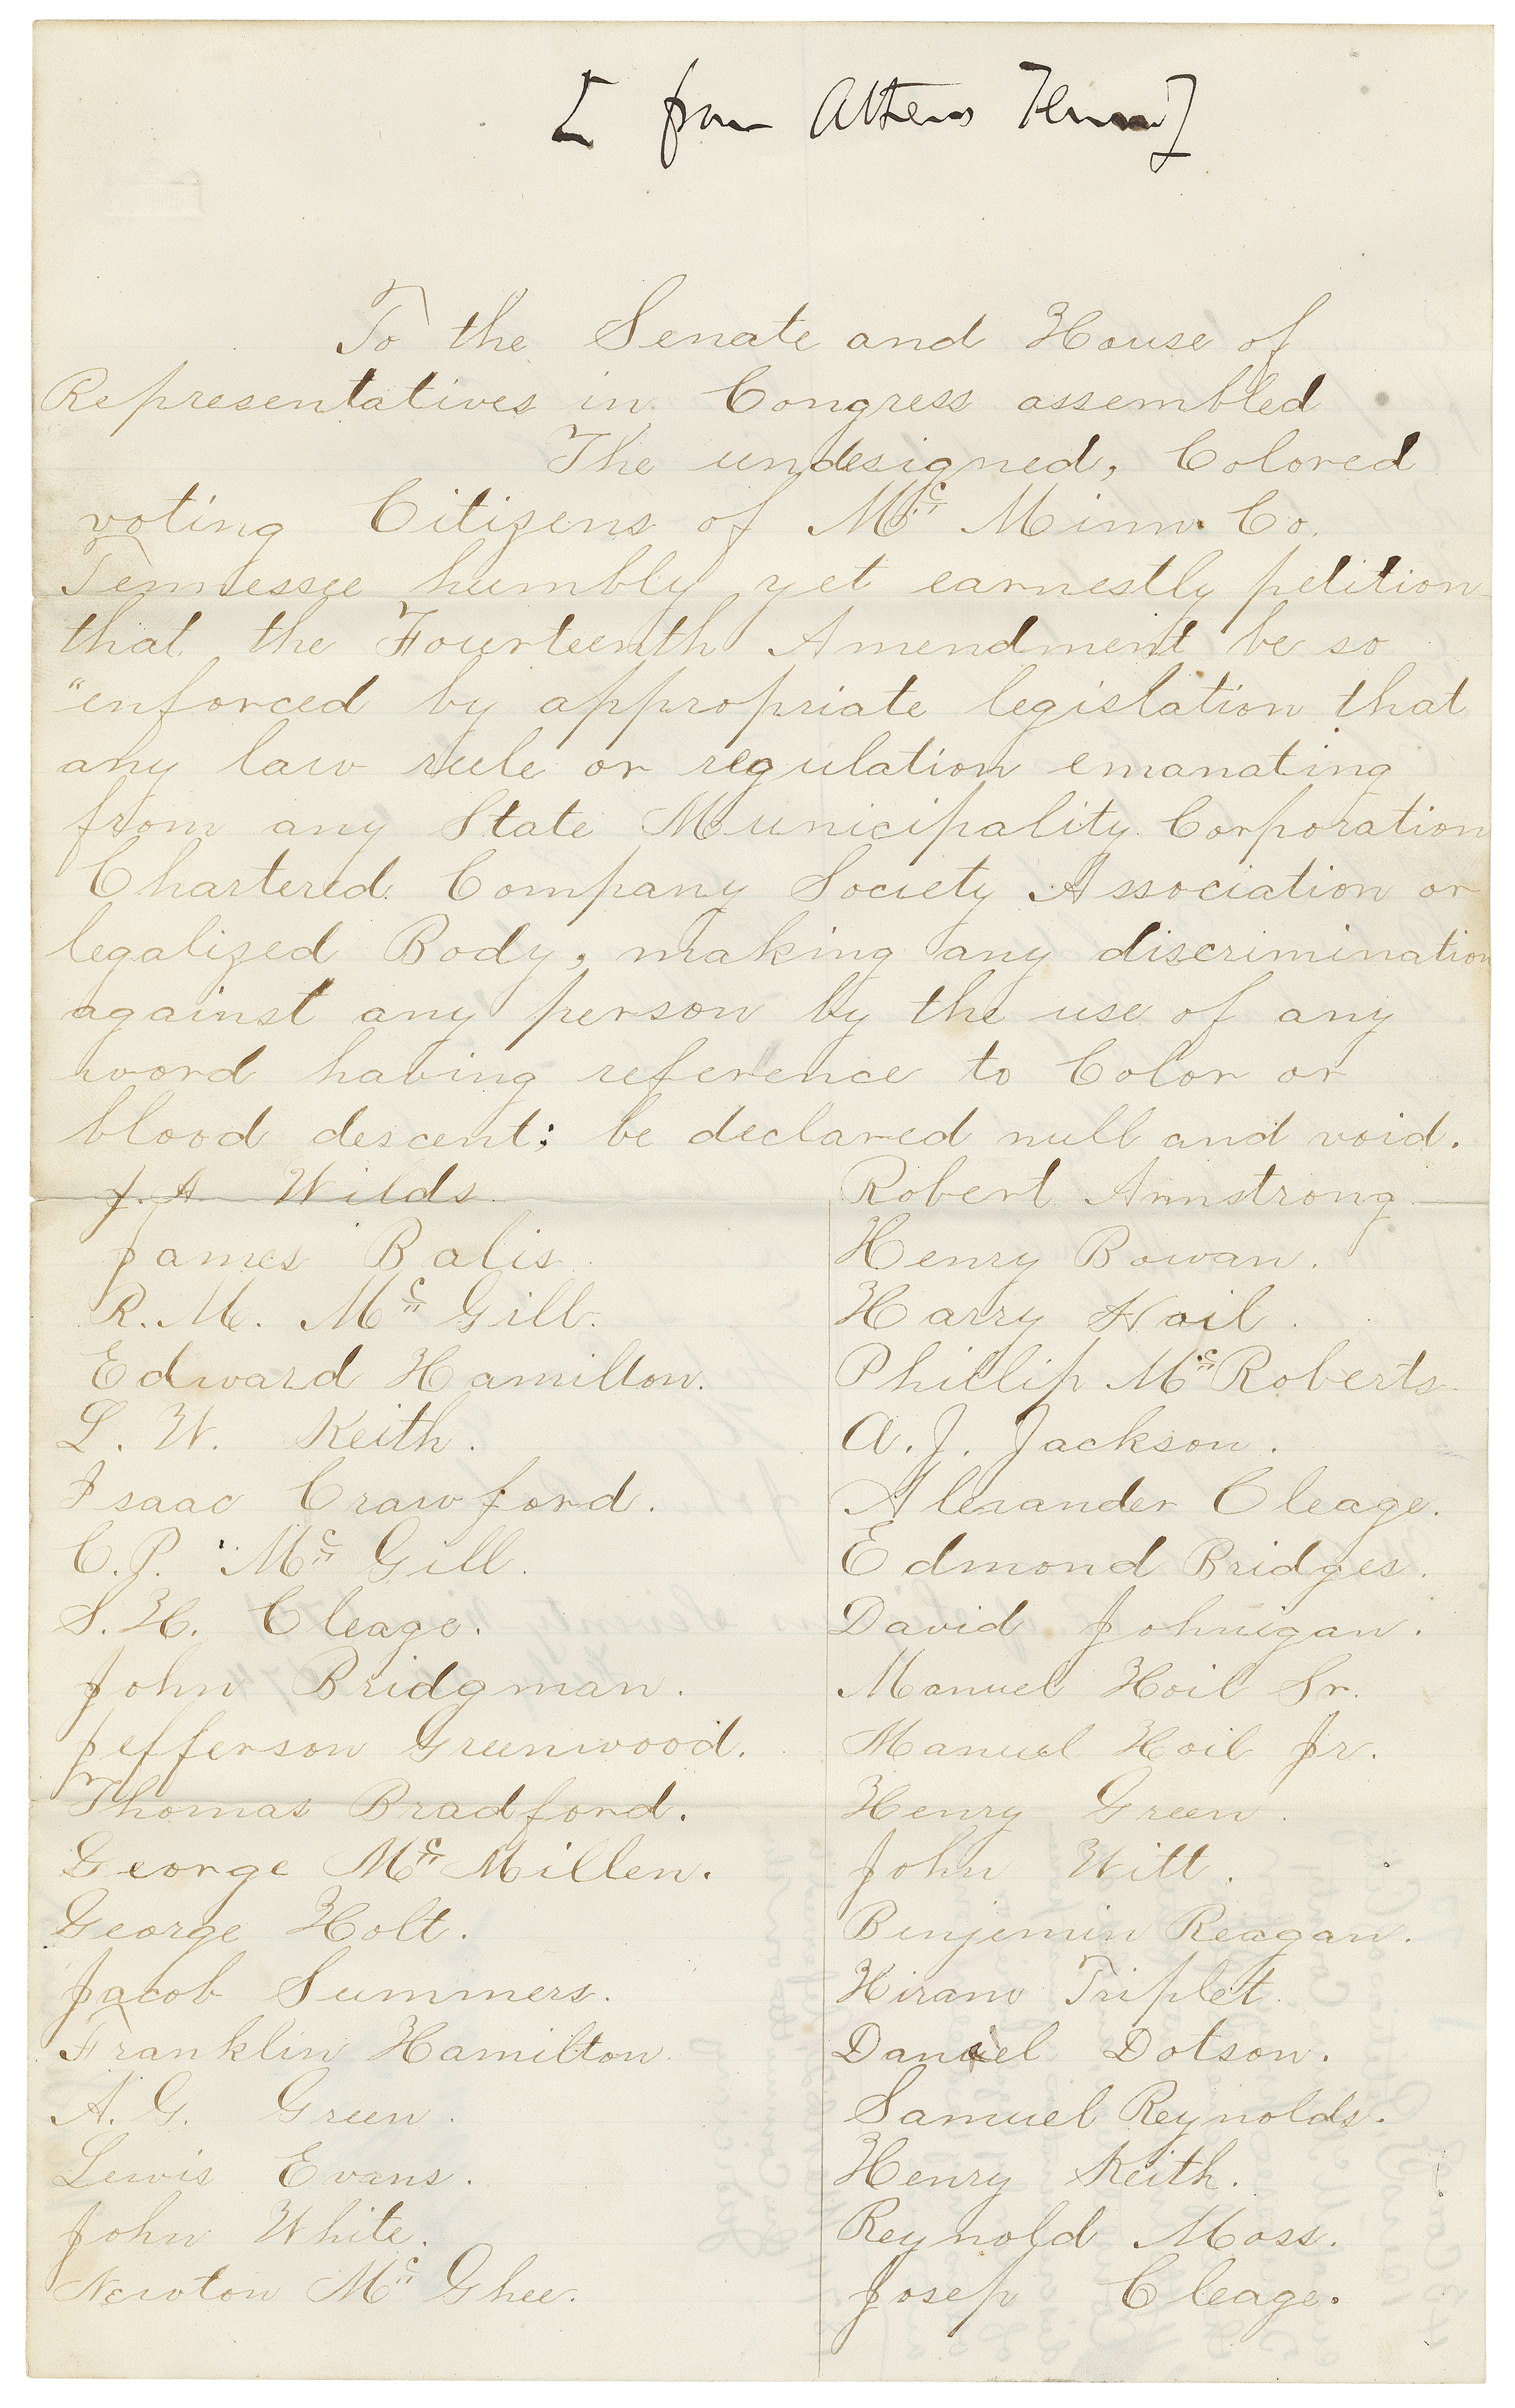 [ from Athens Tenn ]
To the Senate and House of
Representatives in Congress assembled
The undesigned, Colored
voting Citizens of Mc Minn Co.
Tennessee humbly yet earnestly petition
that the Fourteenth Amendment be so
"enforced by appropriate legislation that
any law rule or regulation emanating
from any State Municipality Corporation
Chartered Company Society Association or
legalized Body, making any discrimination
against any person by the use of any
word having reference to Color or
blood descent; be declared null and void.
J. A Wilds
James Balis
R. M. Mc Gill.
Edward Hamilton.
L. W. Keith.
Isaac Crawford.
C. P. Mc Gill.
S. H. Cleage.
John Bridgman.
Jefferson Greenwood.
Thomas Bradford.
George Mc Millen.
George Holt.
Jacob Summers.
Franklin Hamilton
A. G. Green.
Lewis Evans.
John White.
Newton Mc Ghee.
Robert Armstrong
Henry Bowan.
Harry Hoil.
Phillip Mc Roberts
A. J. Jackson.
Alexander Cleage.
Edmond Bridges.
David Johnigan.
Manuel Hoil Sr.
Manuel Hoil Jr.
Henry Green.
John Witt.
Benjemin Reagan.
Hiram Triplet
Daniel Dotson.
Samuel Reynolds.
Henry Keith.
Reynold Moss.
Josep Cleage.